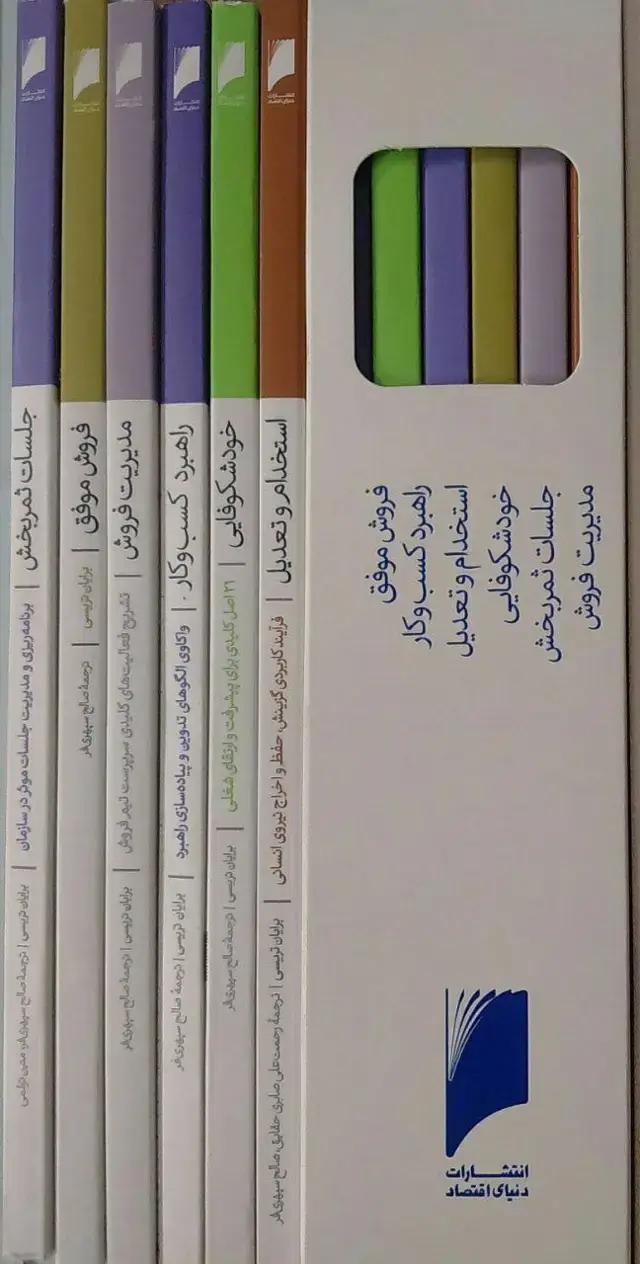 جلسات ثمربخش | برنامه‌ریزی و مدیریت جلسات موثر در سازمان | برایان تریسی | ترجمهٔ صالح سپهری‌فر،
فروش موفق | برایان تریسی | ترجمهٔ صالح سپهری‌فر
مدیریت فروش | تشریح فعالیت‌های کلیدی سرپرست تیم فروش | برایان تریسی | ترجمهٔ صالح سپهری‌فر
راهبرد کسب‌وکار | واکاوی الگوهای تدوین و پیاده‌سازی راهبرد | برایان تریسی | ترجمهٔ صالح سپهری‌فر
خودشکوفایی | ۲۱ اصل کلیدی برای پیشرفت و ارتقای شغلی | برایان تریسی | ترجمهٔ صالح سپهری‌فر
استخدام و تعدیل | فرآیند کاربردی گزینش، حفظ و اخراج نیروی انسانی | برایان تریسی | ترجمهٔ رحمت‌علی صابری حقایق، صالح سپهری‌فر
فروش موفق
راهبرد کسب‌وکار
استخدام و تعدیل
خودشکوفایی
جلسات ثمربخش
مدیریت فروش
انتشارات
دنیای اقتصاد